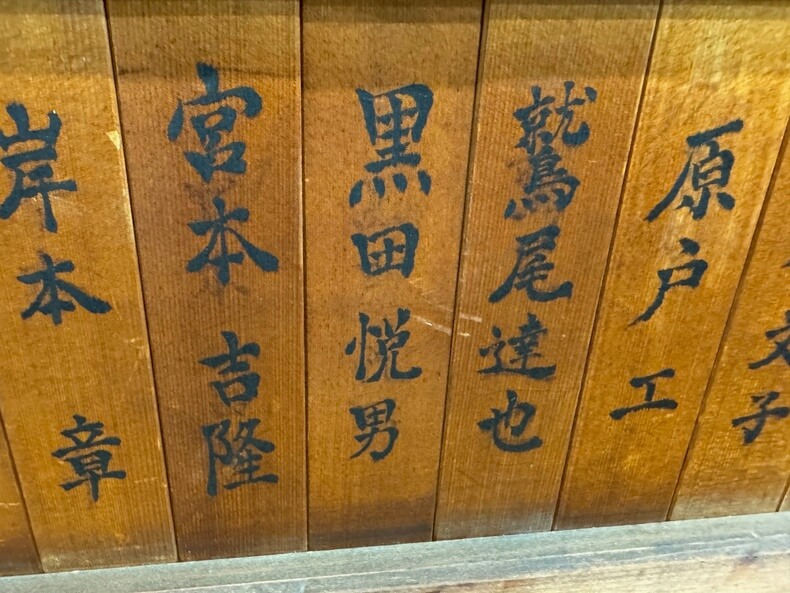 文子
原戸 工
鷲尾達也
黒田悦男
宮本 吉隆
岸本 章